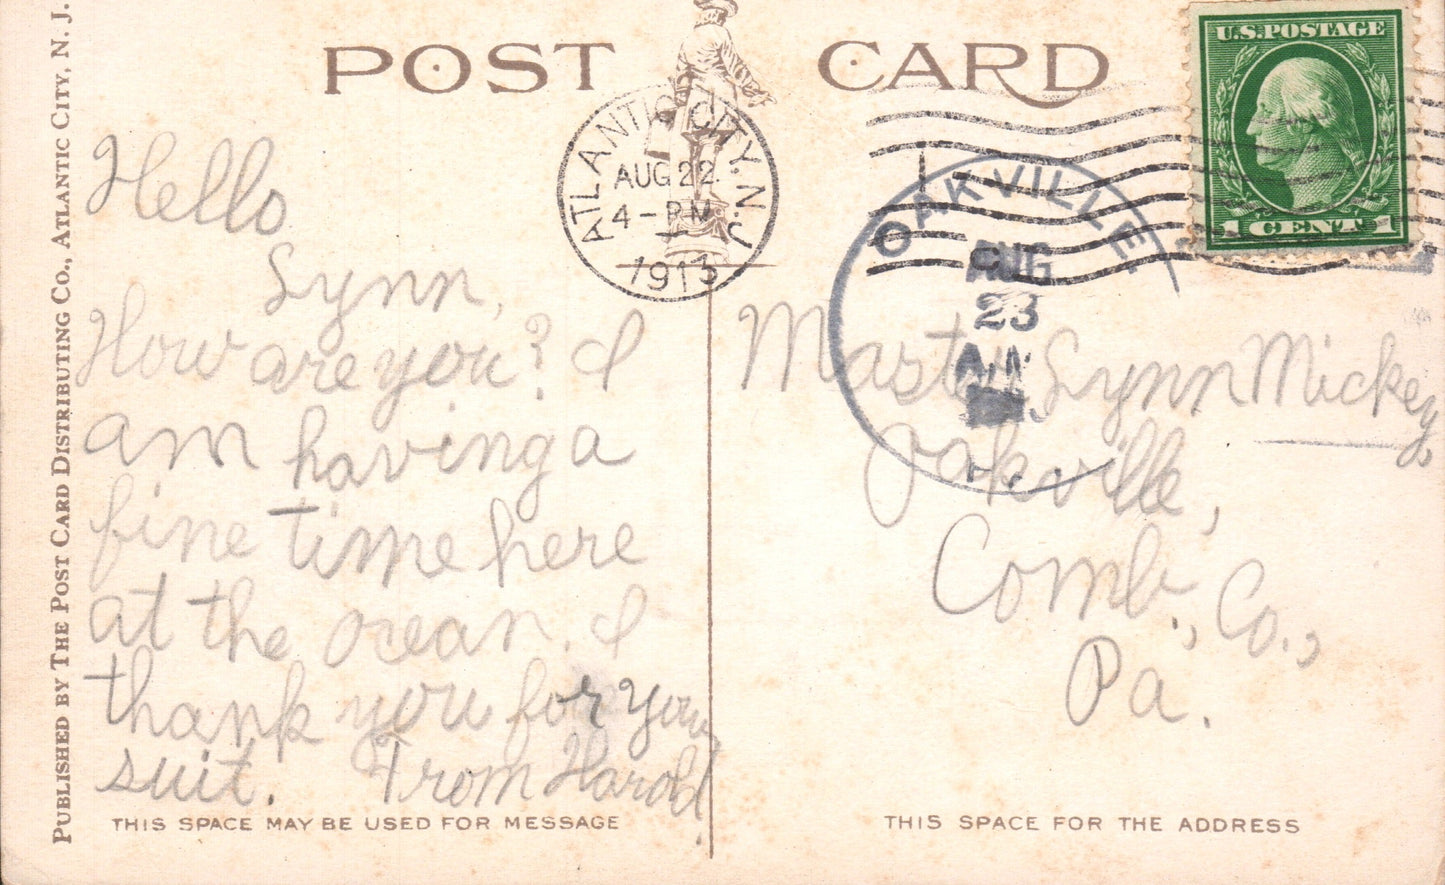 POST CARD
U.S. POSTAGE
1 CENT 1
ATLANTIC CITY, N.J.
AUG 22
4 - PM
1913
OAKVILLE,
AUG
23
A.M.
Hello
Lynn,
How are you? I
am having a
fine time here
at the ocean. I
thank you for your
suit. From Harold.
Master Lynn Mickey,
Oakville,
Comb., Co.,
Pa.
THIS SPACE MAY BE USED FOR MESSAGE
THIS SPACE FOR THE ADDRESS
PUBLISHED BY THE POST CARD DISTRIBUTING CO., ATLANTIC CITY, N. J.